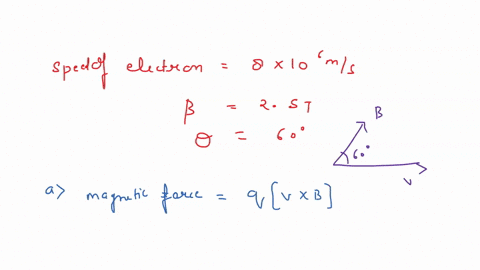 Speed of electron = 8 × 10⁶ m/s
B = 2.5T
θ = 60°
B
60°
V
a> magnetic force = q[V×B]